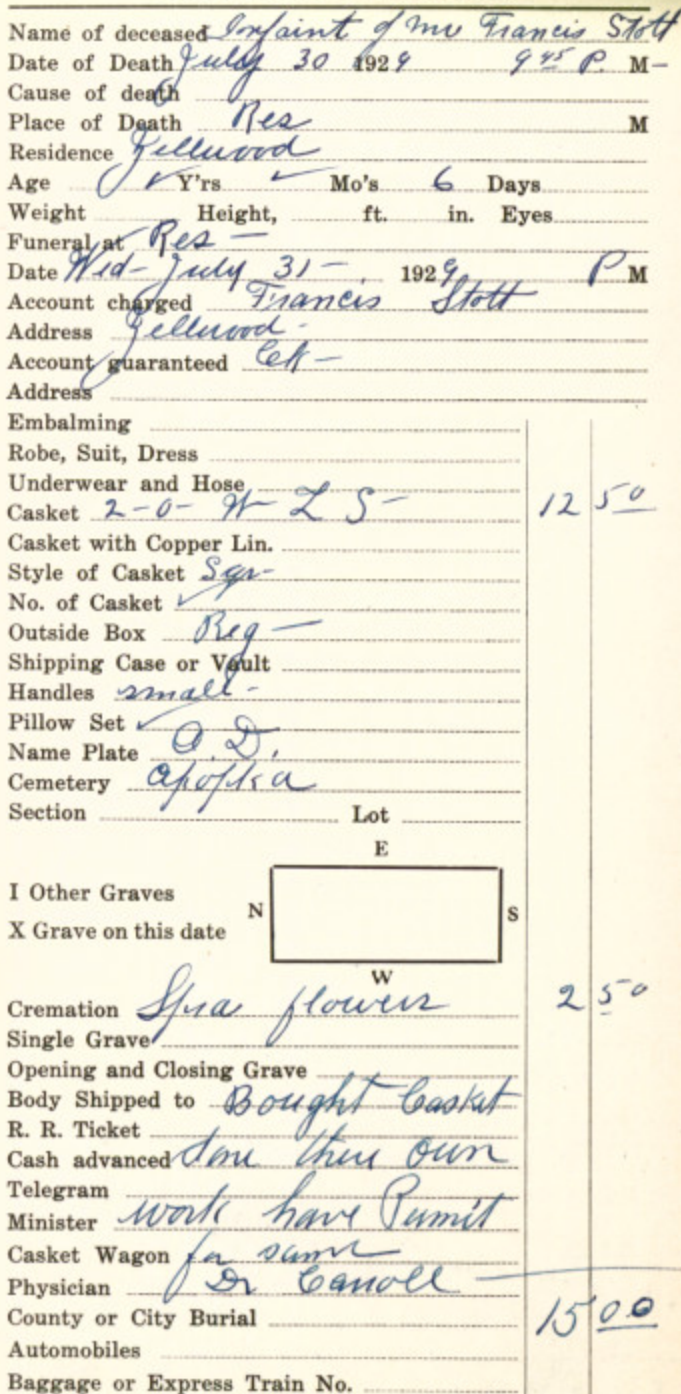 Name of deceased Infaint of Mr Francis Stott
Date of Death July 30 1929 9 45 P. M-
Cause of death
Place of Death Res M
Residence Zellwood
Age ✓ Y'rs ✓ Mo's 6 Days
Weight Height, ft. in. Eyes
Funeral at Res -
Date Wed- July 31- 1929 P M
Account charged Francis Stott
Address Zellwood-
Account guaranteed
Address
Embalming
Robe, Suit, Dress
Underwear and Hose
Casket 2-0- W L S- 12 50
Casket with Copper Lin.
Style of Casket Sqr-
No. of Casket ✓
Outside Box Reg-
Shipping Case or Vault
Handles small-
Pillow Set ✓
Name Plate O.D.
Cemetery Apopka
Section Lot
E
I Other Graves
N S
X Grave on this date
W
Cremation Spra flowers 2 50
Single Grave
Opening and Closing Grave
Body Shipped to Bought Casket
R. R. Ticket
Cash advanced done their own
Telegram
Minister work have Permit
Casket Wagon for same
Physician Dr Carroll
County or City Burial 15 00
Automobiles
Baggage or Express Train No.